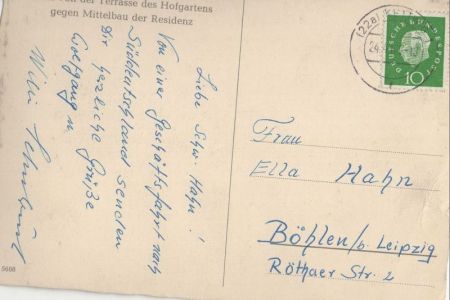 der Terrasse des Hofgartens
gegen Mittelbau der Residenz
Liebe Schw. Hahn!
Von einer Geschäftsfahrt nach
Süddeutschland senden
Dir herzliche Grüße
Wolfgang u.
Willi
(22a)
24.
DEUTSCHE BUNDESPOST
10
Frau
Ella Hahn
Böhlen/b. Leipzig
Röthaer Str. 2
5608